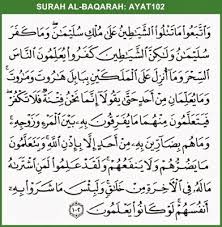 SURAH AL-BAQARAH: AYAT102
وَاتَّبَعُوا مَا تَتْلُوا الشَّيَاطِينُ عَلَىٰ مُلْكِ سُلَيْمَٰنَ ۖ وَمَا كَفَرَ
سُلَيْمَٰنُ وَلَٰكِنَّ الشَّيَاطِينَ كَفَرُوا يُعَلِّمُونَ النَّاسَ
السِّحْرَ وَمَا أُنزِلَ عَلَى الْمَلَكَيْنِ بِبَابِلَ هَٰرُوتَ وَمَٰرُوتَ ۚ
وَمَا يُعَلِّمَانِ مِنْ أَحَدٍ حَتَّىٰ يَقُولَا إِنَّمَا نَحْنُ فِتْنَةٌ فَلَا تَكْفُرْ ۖ
فَيَتَعَلَّمُونَ مِنْهُمَا مَا يُفَرِّقُونَ بِهِ بَيْنَ الْمَرْءِ وَزَوْجِهِ ۚ
وَمَا هُم بِضَارِّينَ بِهِ مِنْ أَحَدٍ إِلَّا بِإِذْنِ اللَّهِ ۚ وَيَتَعَلَّمُونَ
مَا يَضُرُّهُمْ وَلَا يَنفَعُهُمْ ۚ وَلَقَدْ عَلِمُوا لَمَنِ اشْتَرَىٰهُ
مَا لَهُ فِي الْآخِرَةِ مِنْ خَلَٰقٍ ۚ وَلَبِئْسَ مَا شَرَوْا بِهِ
أَنفُسَهُمْ ۚ لَوْ كَانُوا يَعْلَمُونَ ١٠٢